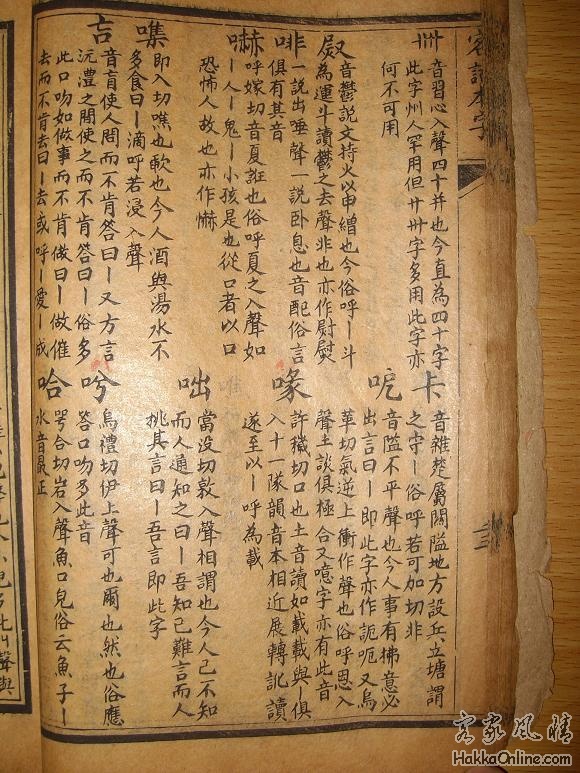 客話本字
卌 音習心入聲四十并也今直為四十字
此字州人罕用但廿卅字多用此字亦
何不可用
音鬱說文持火以申繒也今俗呼丨斗
為運斗讀鬱之去聲非也亦作尉熨
啡 一說出唾聲一說卧息也音配俗言
俱有其音
嚇 呼嫁切音夏誑也俗呼夏之入聲如
丨人丨鬼丨小孩是也從口者以口
恐怖人故也亦作嚇
噍 即入切噍也歃也今人酒與湯水不
多食曰丨滴呼若浸入聲
音盲使人問而不肯答曰丨又方言
沅澧之間使之而不肯答曰丨俗多
此口吻如做事而不肯做曰丨做催
去而不肯去曰丨去或呼丨愛丨成
卡 音雜楚屬關隘地方設兵立塘謂
之守丨俗呼若可加切非
呃 音隘不平聲也今人事有拂意必
出言曰丨即此字亦作詎呃又烏
革切氣逆上衝作聲也俗呼恩入
聲土談俱極合又噫字亦有此音
喙 許穢切口也土音讀如載載與丨俱
入十一隊韻音本相近展轉訛讀
遂至以丨呼為載
咄 當没切敦入聲相謂也今人己不知
而人通知之曰丨吾知己難言而人
挑其言曰丨吾言即此字
兮 烏禮切伊上聲可也爾也然也俗應
答口吻多此音
哈 咢合切岩入聲魚口皃俗云魚子丨
水音最正
三
客家風情
HakkaOnline.com